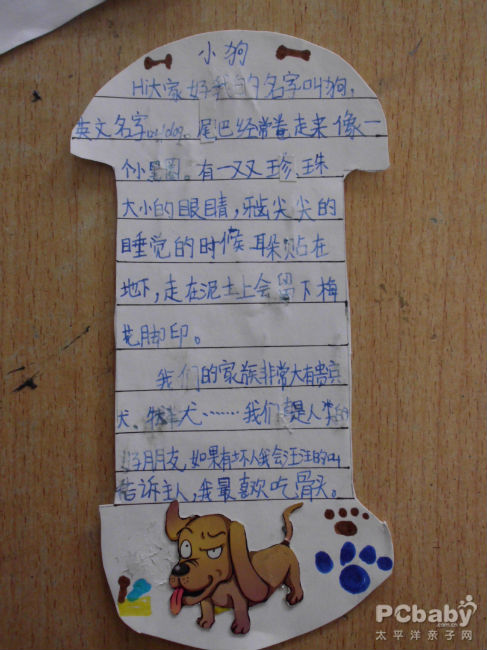 小狗
Hi大家好我的名字叫狗，
英文名字叫dog。尾巴经常卷走来像一
个小黑圈。有一双又珍珠
大小的眼睛，牙齿尖尖的
睡觉的时候耳朵贴在
地下，走在泥土上会留下梅
花脚印。
我们的家族非常大有贵宾
犬、牧羊犬……我们真是人类的
好朋友，如果有坏人我会汪汪的叫
告诉主人，我最喜欢吃骨头。
PCbaby
.com.cn
太平洋亲子网